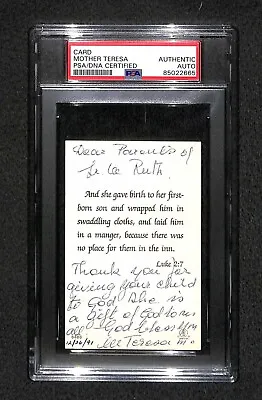 CARD
MOTHER TERESA
PSA/DNA CERTIFIED
AUTHENTIC
AUTO
PSA
85022665
Dear Parents of
Sr. Ruth.
And she gave birth to her first-
born son and wrapped him in
swaddling cloths, and laid him
in a manger, because there was
no place for them in the inn.
Luke 2:7
Thank you for
giving your child
to God She is
a gift of God to us
all. God bless you
M Teresa m.c.
12/26/91